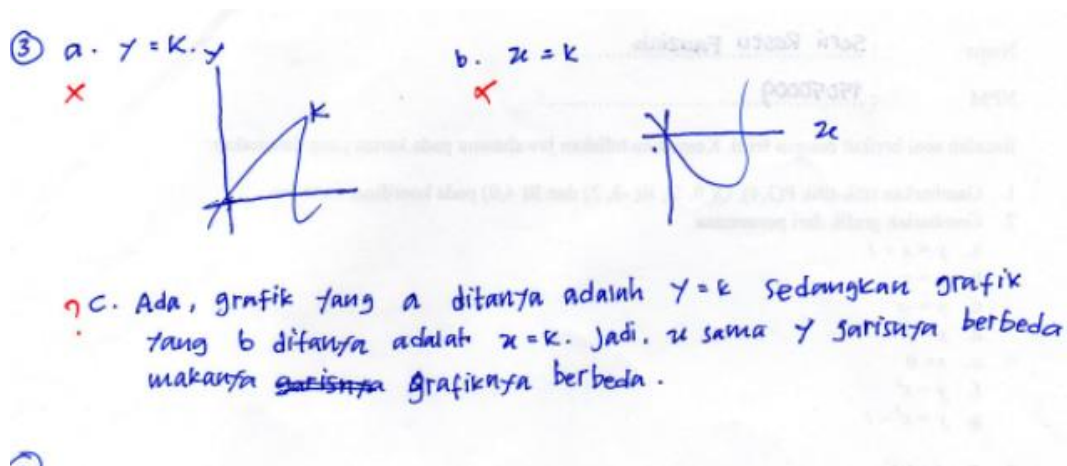 ③ a. y = k. y
b. x = k
k
x
? c. Ada, grafik yang a ditanya adalah y = k sedangkan grafik
yang b ditanya adalah x = k. Jadi, x sama y garisnya berbeda
makanya garisnya grafiknya berbeda.